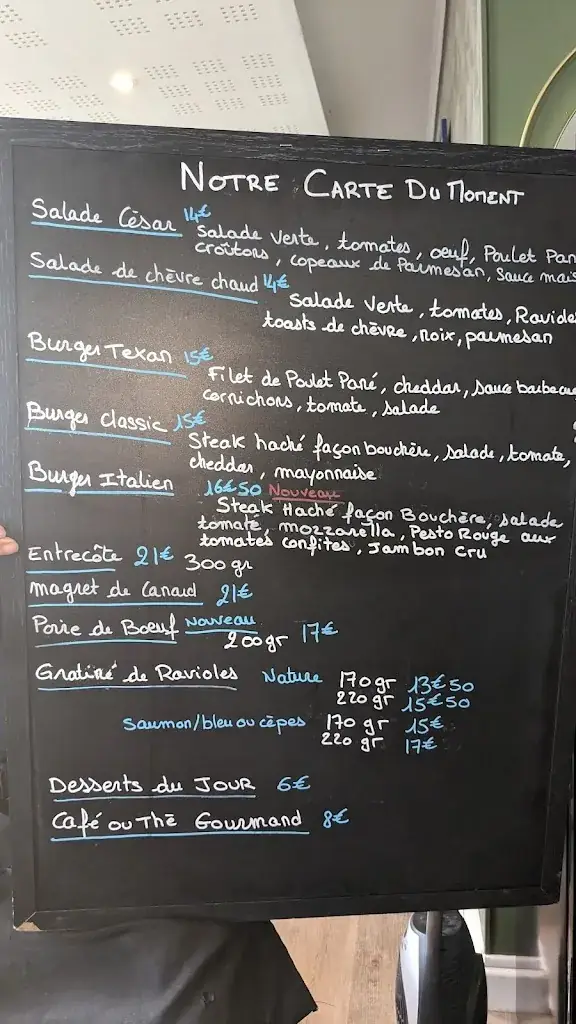 NOTRE CARTE DU MOMENT
Salade César 14€
Salade verte, tomates, oeuf, Poulet Pan
croûtons, copeaux de Parmesan, Sauce mais
Salade de chèvre chaud 14€
Salade verte, tomates, Ravide
toasts de chèvre, noix, parmesan
Burger Texan 15€
Filet de Poulet Pané, cheddar, sauce barbecue
cornichons, tomate, salade
Burger classic 15€
Steak haché façon bouchère, salade, tomate,
cheddar, mayonnaise
Burger Italien 16€50 Nouveau
Steak Haché façon Bouchère, salade
tomate, mozzarella, Pesto Rouge aux
tomates confites, Jambon cru
Entrecôte 21€ 300gr
magret de Canard 21€
Poire de Boeuf Nouveau 200gr 17€
Gratiné de Ravioles Nature 170gr 13€50
220gr 15€50
Saumon/bleu ou cèpes 170gr 15€
220gr 17€
Desserts du JOUR 6€
Café ou Thé Gourmand 8€